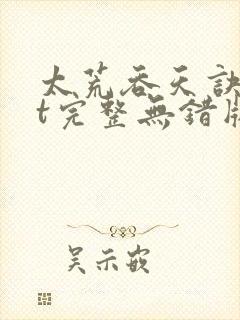 太荒吞天訣
t完整無錯版
吴示嵌